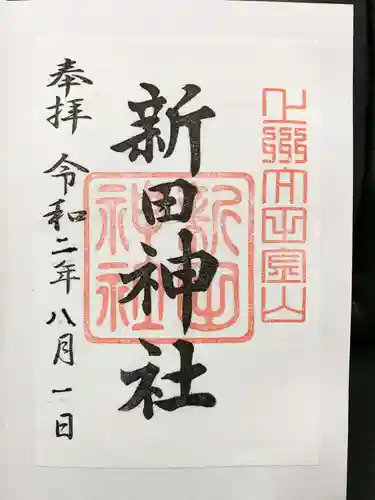 上野太田金山
新田神社
新田神社
奉拝
令和二年八月一日